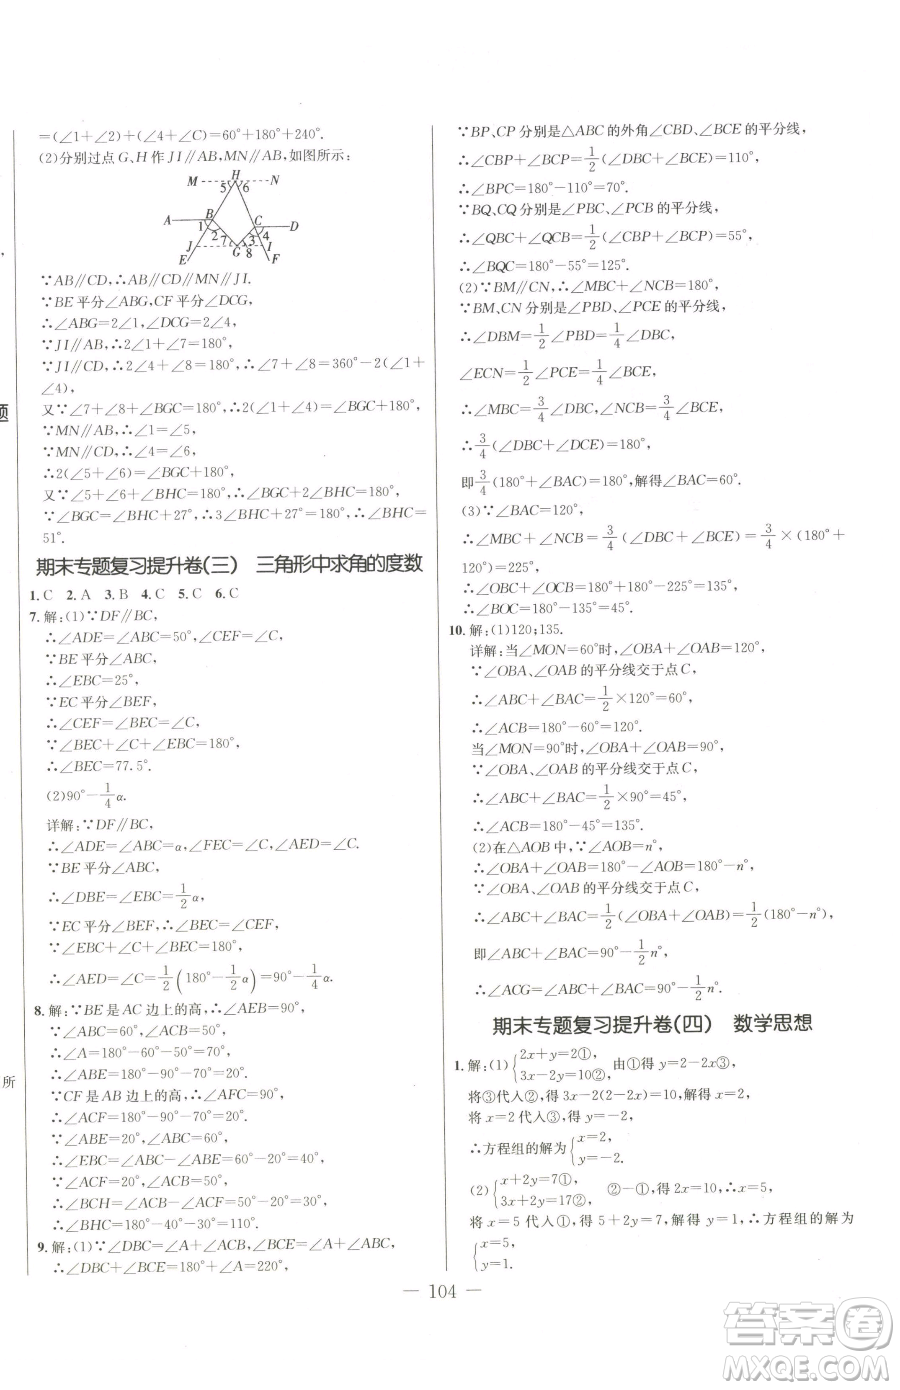 =(∠1+∠2)+(∠4+∠C)=60°+180°+240°.
(2)分别过点G、H作JI∥AB,MN∥AB,如图所示:
M H N
5 6
A B C D
1 2 3 4
J 7 G 8 I
E F
∵AB∥CD,∴AB∥CD∥MN∥JI.
∵BE平分∠ABG,CF平分∠DCG,
∴∠ABG=2∠1,∠DCG=2∠4,
∵JI∥AB,∴2∠1+∠7=180°,
∵JI∥CD,∴2∠4+∠8=180°,∴∠7+∠8=360°-2(∠1+
∠4),
又∵∠7+∠8+∠BGC=180°,∴2(∠1+∠4)=∠BGC+180°,
∵MN∥AB,∴∠1=∠5,
∵MN∥CD,∴∠4=∠6,
∴2(∠5+∠6)=∠BGC+180°,
又∵∠5+∠6+∠BHC=180°,∴∠BGC+2∠BHC=180°,
∵∠BGC=∠BHC+27°,∴3∠BHC+27°=180°,∴∠BHC=
51°.
期末专题复习提升卷(三) 三角形中求角的度数
1.C 2.A 3.B 4.C 5.C 6.C
7.解:(1)∵DF∥BC,
∴∠ADE=∠ABC=50°,∠CEF=∠C,
∵BE平分∠ABC,
∴∠EBC=25°,
∵EC平分∠BEF,
∴∠CEF=∠BEC=∠C,
∵∠BEC+∠C+∠EBC=180°,
∴∠BEC=77.5°.
(2)90°-1/4α.
详解:∵DF∥BC,
∴∠ADE=∠ABC=α,∠FEC=∠C,∠AED=∠C.
∵BE平分∠ABC,
∴∠DBE=∠EBC=1/2α,
∵EC平分∠BEF,∴∠BEC=∠FEC=∠C,
∵∠EBC+∠C+∠BEC=180°,
∴∠AED=∠C=1/2(180°-1/2α)=90°-1/4α.
8.解:∵BE是AC边上的高,∴∠AEB=90°,
∵∠ABC=60°,∠ACB=50°,
∴∠A=180°-60°-50°=70°,
∴∠ABE=180°-90°-70°=20°,
∵CF是AB边上的高,∴∠AFC=90°,
∴∠ACF=180°-90°-70°=20°,
∵∠ABE=20°,∠ABC=60°,
∴∠EBC=∠ABC-∠ABE=60°-20°=40°,
∵∠ACF=20°,∠ACB=50°,
∴∠BCH=∠ACB-∠ACF=50°-20°=30°,
∴∠BHC=180°-40°-30°=110°.
9.解:(1)∵∠DBC=∠A+∠ACB,∠BCE=∠A+∠ABC,
∴∠DBC+∠BCE=180°+∠A=220°,
∵BP、CP分别是△ABC的外角∠CBD、∠BCE的平分线,
∴∠CBP+∠BCP=1/2(∠DBC+∠BCE)=110°,
∴∠BPC=180°-110°=70°.
∵BQ、CQ分别是∠PBC、∠PCB的平分线,
∴∠QBC+∠QCB=1/2(∠CBP+∠BCP)=55°,
∴∠BQC=180°-55°=125°.
(2)∵BM∥CN,∴∠MBC+∠NCB=180°,
∵BM、CN分别是∠PBD、∠PCE的平分线,
∴∠DBM=1/2∠PBD=1/4∠DBC,
∠ECN=1/2∠PCE=1/4∠BCE,
∴∠MBC=3/4∠DBC,∠NCB=3/4∠BCE,
∴3/4(∠DBC+∠BCE)=180°,
即3/4(180°+∠BAC)=180°,解得∠BAC=60°.
(3)∵∠BAC=120°,
∴∠MBC+∠NCB=3/4(∠DBC+∠BCE)=3/4×(180°+
120°)=225°.
∴∠OBC+∠OCB=225°-180°=45°,
∴∠BOC=180°-45°=135°.
10.解:(1)120;135.
详解:当∠MON=60°时,∠OBA+∠OAB=120°,
∵∠OBA、∠OAB的平分线交于点C,
∴∠ABC+∠BAC=1/2×120°=60°,
∴∠ACB=180°-60°=120°.
当∠MON=90°时,∠OBA+∠OAB=90°,
∵∠OBA、∠OAB的平分线交于点C,
∴∠ABC+∠BAC=1/2×90°=45°,
∴∠ACB=180°-45°=135°.
(2)在△AOB中,∵∠AOB=n°,
∴∠OBA+∠OAB=180°-∠AOB=180°-n°,
∵∠OBA、∠OAB的平分线交于点C,
∴∠ABC+∠BAC=1/2(∠OBA+∠OAB)=1/2(180°-n°),
即∠ABC+∠BAC=90°-1/2n°.
∴∠ACG=∠ABC+∠BAC=90°-1/2n°.
期末专题复习提升卷(四) 数学思想
1.解:(1){2x+y=2①, 3x-2y=10②, 由①得y=2-2x③,
将③代入②,得3x-2(2-2x)=10,解得x=2,
将x=2代入③,得y=-2,
∴方程组的解为{x=2, y=-2.
(2){x+2y=7①, 3x+2y=17②, ②-①,得2x=10,∴x=5,
将x=5代入①,得5+2y=7,解得y=1,∴方程组的解为
{x=5, y=1.
题
所
— 104 —
答案圈
MXQE.COM